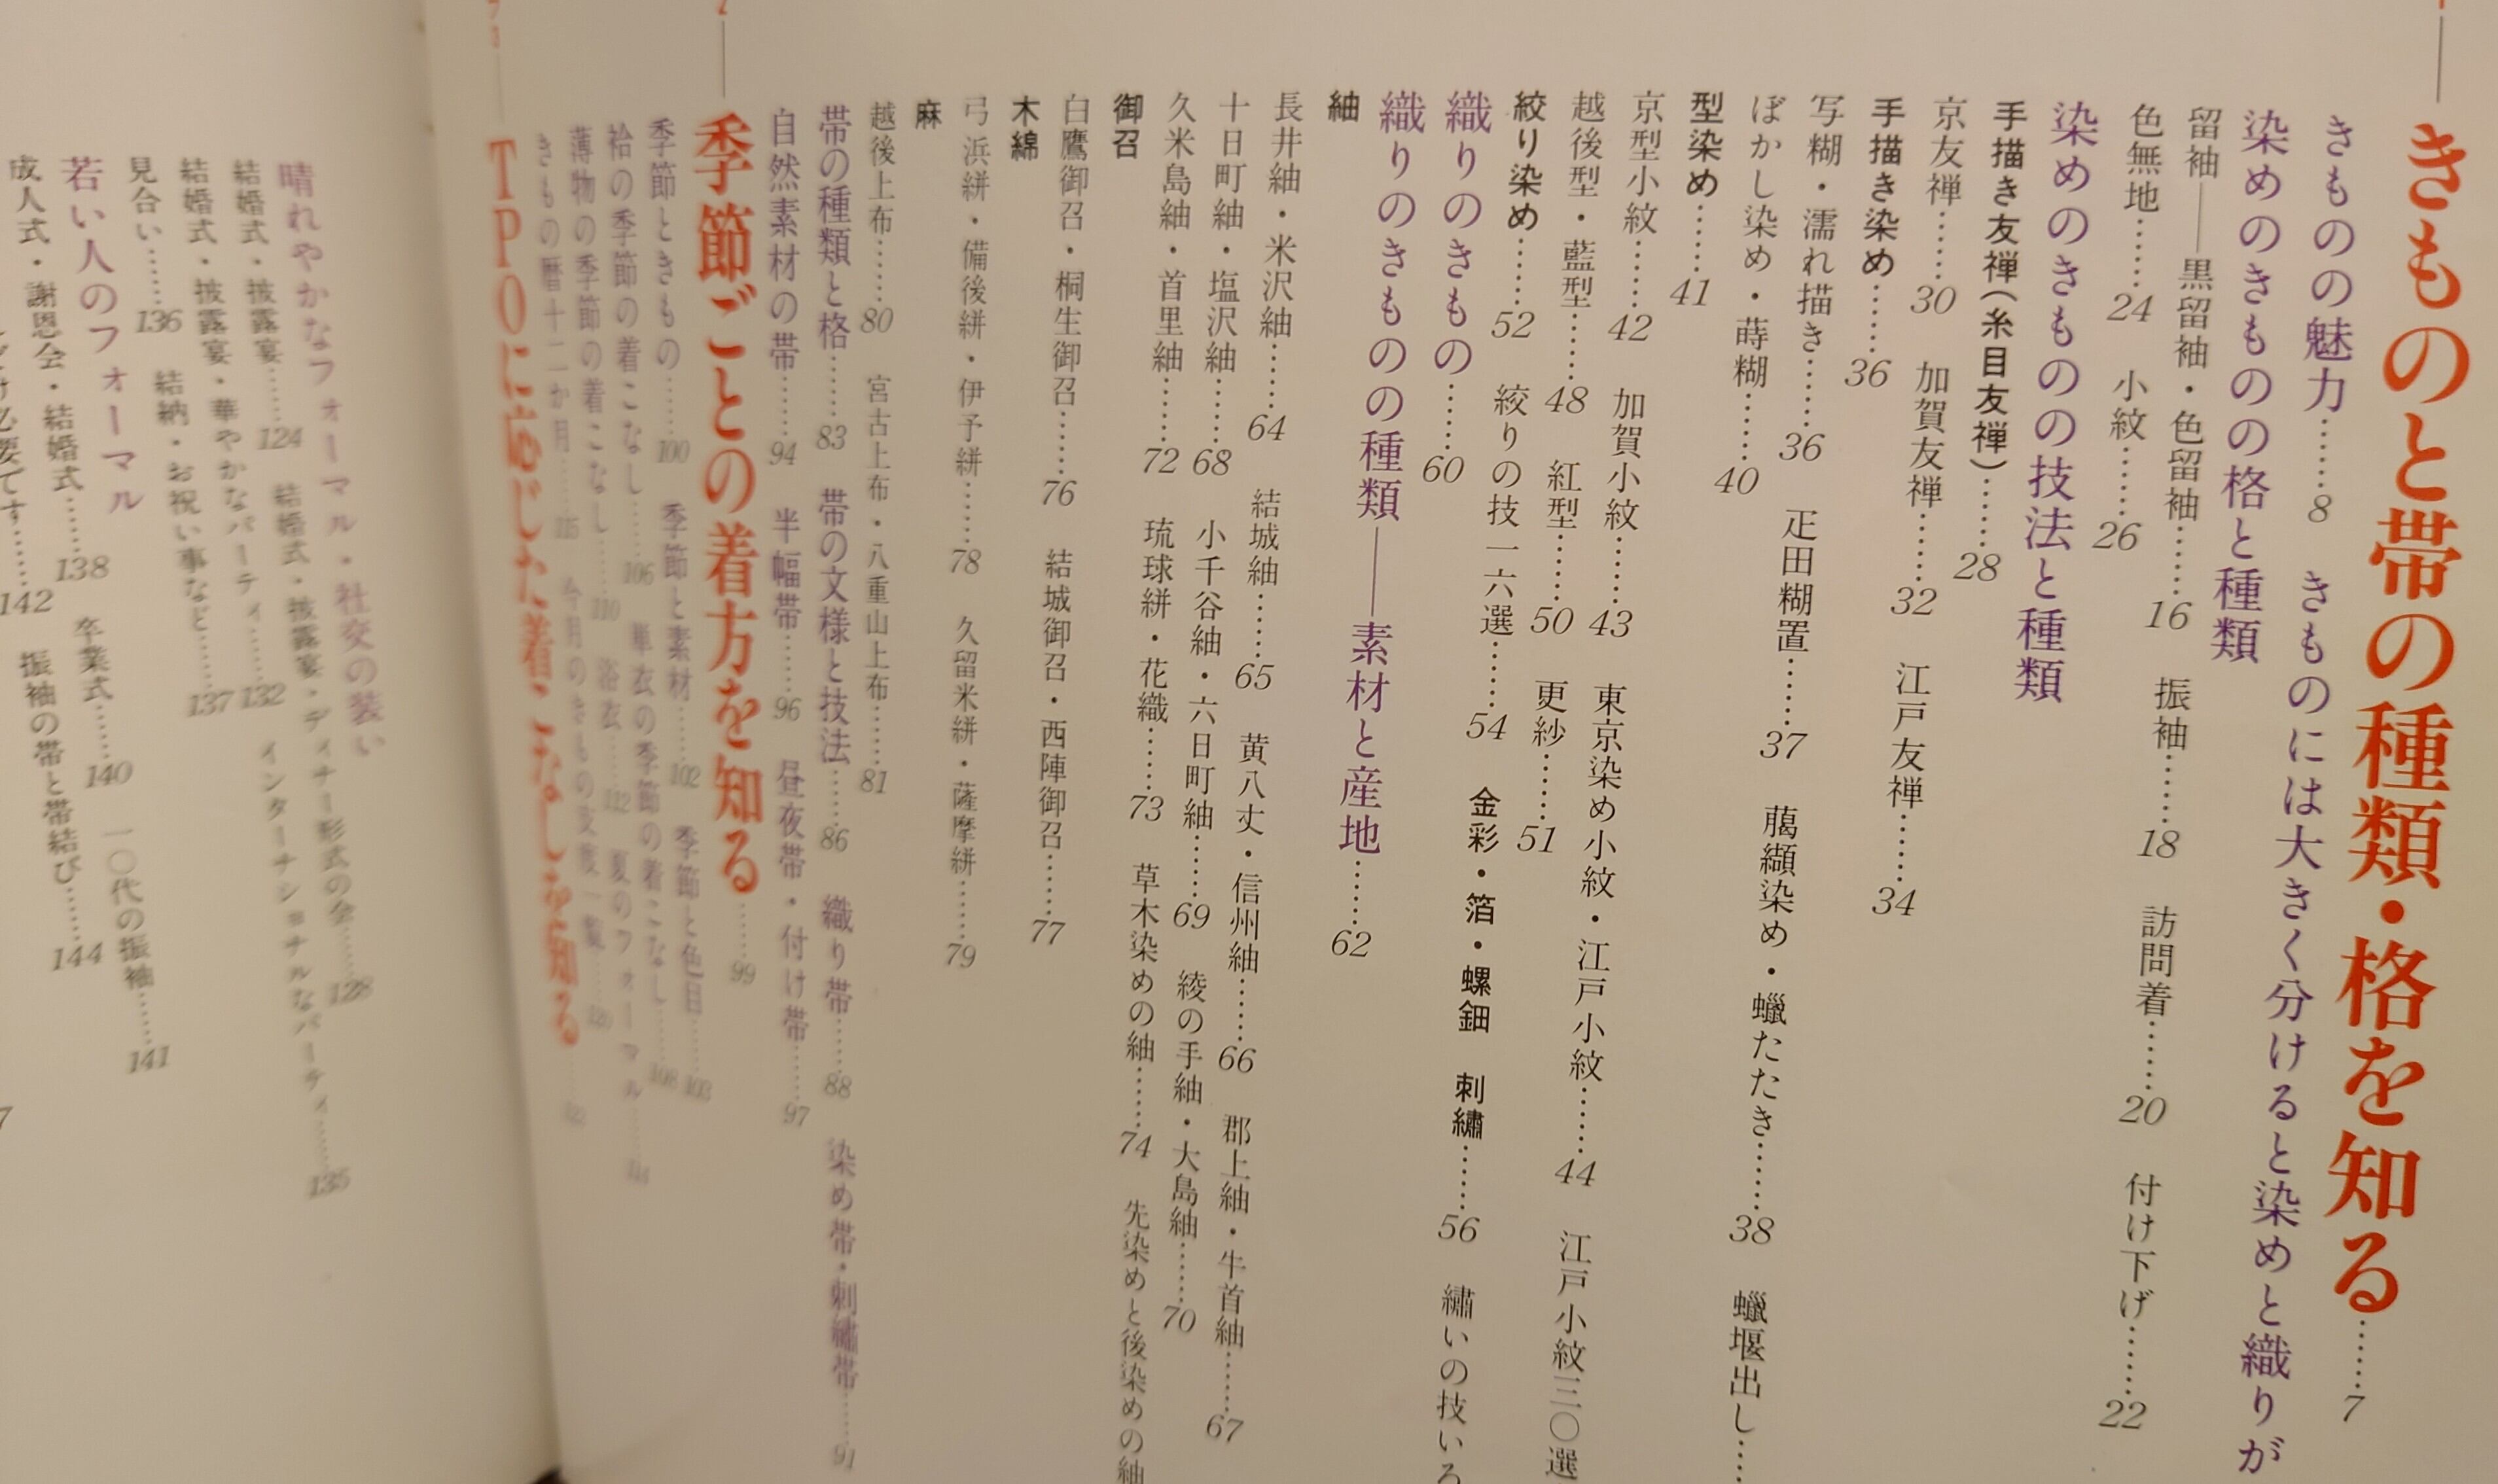 きものと帯の種類・格を知る……7
きものの魅力……8　きものには大きく分けると染めと織りが
染めのきものの格と種類
留袖――黒留袖・色留袖……16　振袖……18　訪問着……20　付け下げ……22
色無地……24　小紋……26
染めのきものの技法と種類
手描き友禅（糸目友禅）……28
京友禅……30　加賀友禅……32　江戸友禅……34
手描き染め……36
写糊・濡れ描き……36　疋田糊置……37　﨟纈染め・蠟たたき……38　蠟堰出し…
ぼかし染め・蒔糊……40
型染め……41
京型小紋……42　加賀小紋……43　東京染め小紋・江戸小紋……44　江戸小紋三〇選
越後型・藍型……48　紅型……50　更紗……51
絞り染め……52　絞りの技一六選……54　金彩・箔・螺鈿　刺繡……56　繡いの技いろ
織りのきもの……60
織りのきものの種類――素材と産地……62
紬
長井紬・米沢紬……64　結城紬……65　黄八丈・信州紬……66　郡上紬・牛首紬……67
十日町紬・塩沢紬……68　小千谷紬・六日町紬……69　綾の手紬・大島紬……70
久米島紬・首里紬……72　琉球絣・花織……73　草木染めの紬……74　先染めと後染めの紬
御召
白鷹御召・桐生御召……76　結城御召・西陣御召……77
木綿
弓浜絣・備後絣・伊予絣……78　久留米絣・薩摩絣……79
麻
越後上布……80　宮古上布・八重山上布……81
帯の種類と格……83　帯の文様と技法……86　織り帯……88　染め帯・刺繡帯……91
自然素材の帯……94　半幅帯……96　昼夜帯・付け帯……97
季節ごとの着方を知る……99
季節ときもの……100　季節と素材……102　季節と色目……103
袷の季節の着こなし……106　単衣の季節の着こなし……108
薄物の季節の着こなし……110　浴衣……112　夏のフォーマル
きもの暦十二か月……115　今月のきもの
TPOに応じた着こなしを知る
晴れやかなフォーマル・社交の装い
結婚式・披露宴……124　結婚式・披露宴・ディナー形式の会……128
結婚式・披露宴・華やかなパーティ……132　インターナショナルなパーティ……135
見合い……136　結納・お祝い事など……137
若い人のフォーマル
成人式・謝恩会・結婚式……138　卒業式……140　一〇代の振袖……141
必要です……142　振袖の帯と帯結び……144